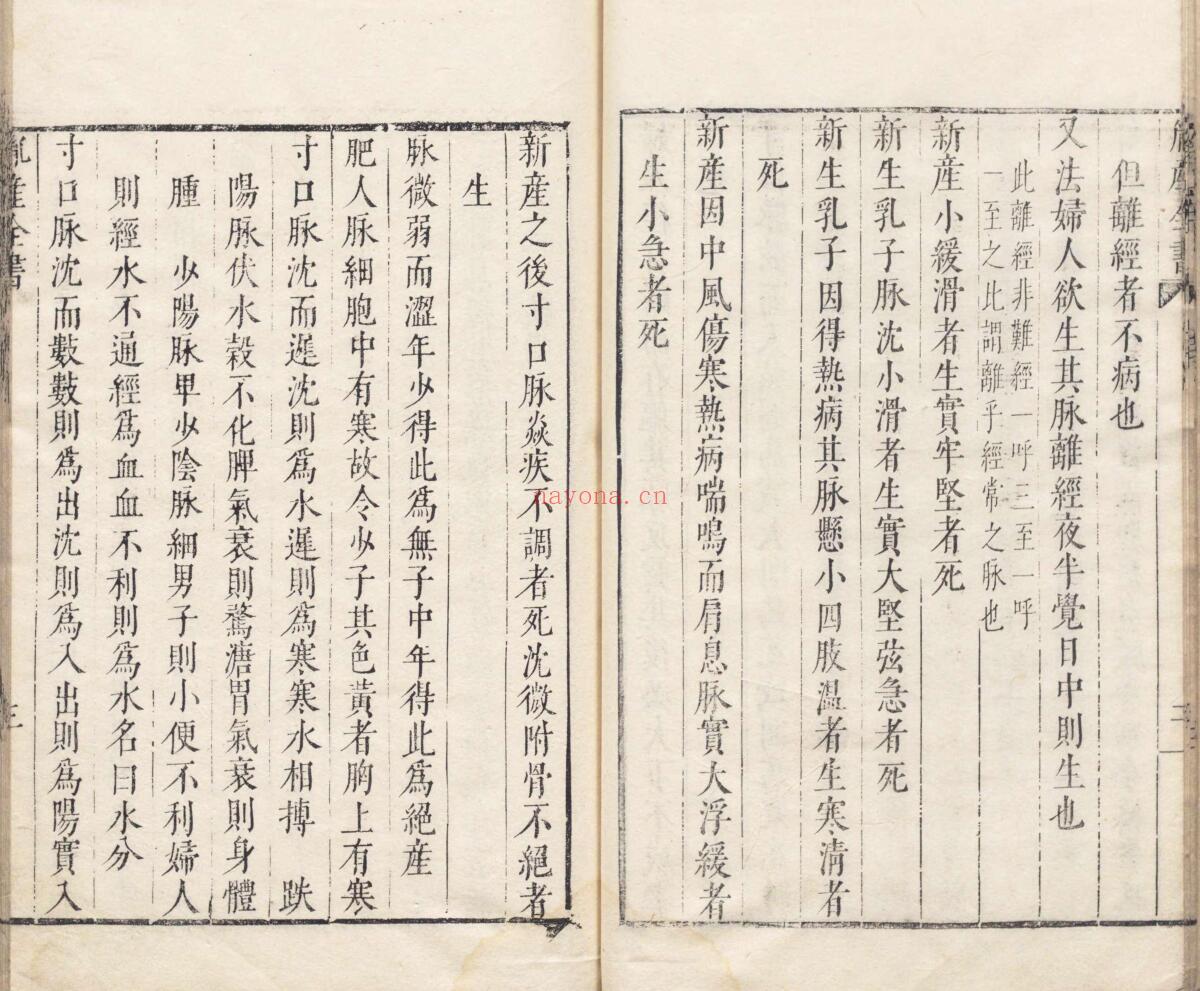 但離經者不病也
又法婦人欲生其脉離經夜半覺日中則生也
此離經非難經一呼三至一呼
一至之比謂離乎經常之脉也
新産小緩滑者生實牢堅者死
新生乳子脉沈小滑者生實大堅弦急者死
新生乳子因得熱病其脉懸小四肢温者生寒清者
死
新産因中風傷寒熱病喘鳴而肩息脉實大浮緩者
生小急者死
新産之後寸口脉焱疾不調者死沈微附骨不絕者
生
脉微弱而澀年少得此爲無子中年得此爲絕産
肥人脉細胞中有寒故令少子其色黃者胸上有寒
寸口脉沈而遲沈則爲水遲則爲寒寒水相搏　趺
陽脉伏水穀不化脾氣衰則鶩溏胃氣衰則身體
腫　少陽脉卑少陰脉細男子則小便不利婦人
則經水不通經爲血血不利則爲水名曰水分
寸口脉沈而數數則爲出沈則爲入出則爲陽實入
産全書
三
nayona.cn